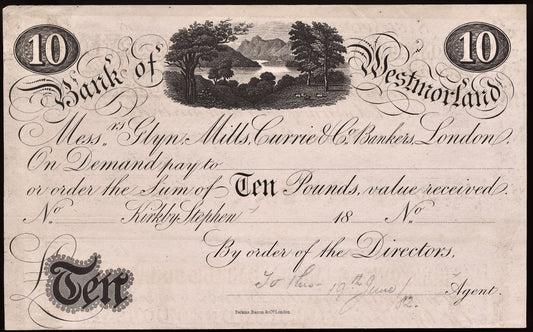 10 10
Bank of Westmorland
Mess.rs Glyn, Mills, Currie & Co. Bankers, London.
On Demand pay to
or order the Sum of Ten Pounds, value received.
No Kirkby Stephen 18 No
By order of the Directors,
£ Ten
19th June
Agent.
Perkins, Bacon & Co. London.